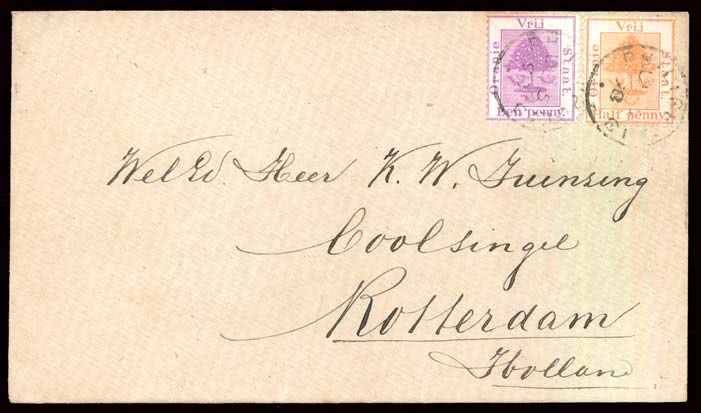 Vrij
Oranje
Staat.
Een penny.
Vrij
Oranje
Staat.
Half penny.
WelEd. Heer K. W.
Coolsingel
Rotterdam
Holland